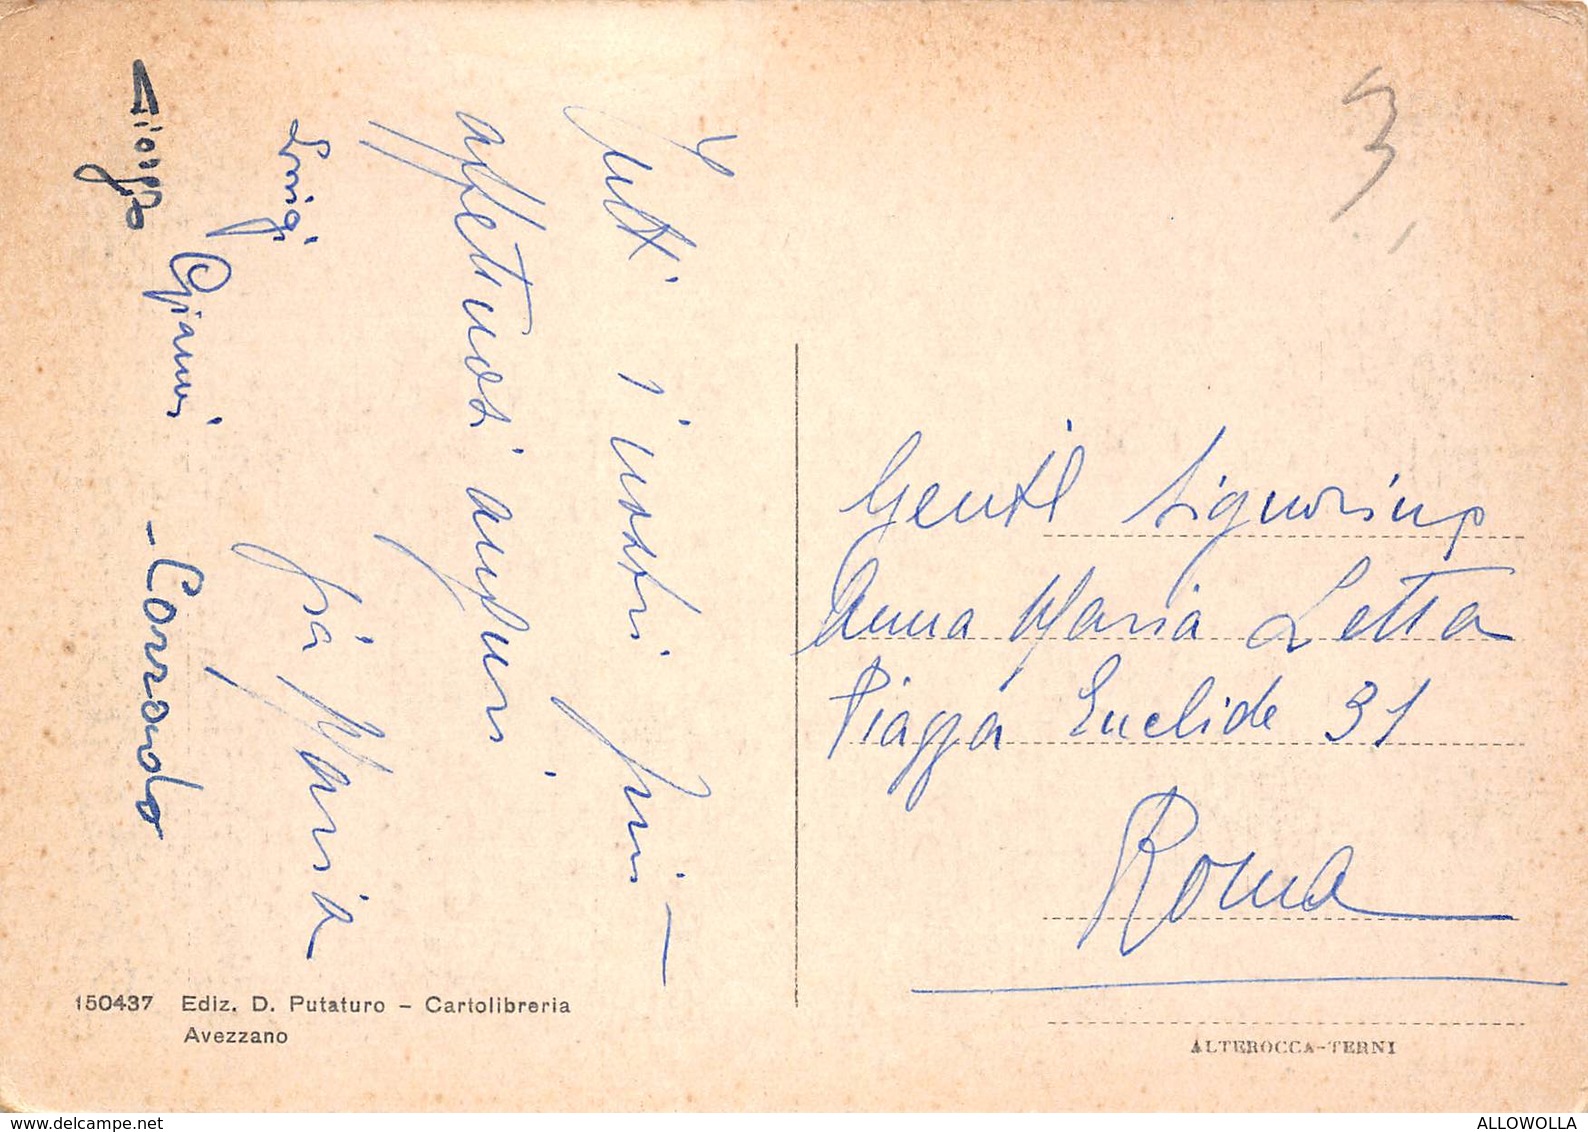 Tutti i nostri più
affettuosi auguri
Luigi
zia Maria
Gianni
Giorgio
- Corrado
3
Gentil Signorina
Anna Maria Letta
Piazza Euclide 31
Roma
150437 Ediz. D. Putaturo - Cartolibreria
Avezzano
ALTEROCCA-TERNI
www.delcampe.net
ALLOWOLLA